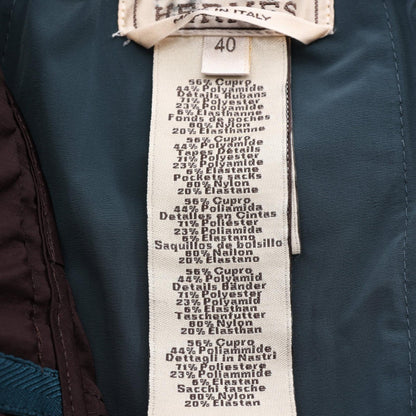 HERMES
IN ITALY
40
56% Cupro
44% Polyamide
Détails Rubans
71% Polyester
23% Polyamide
6% Elasthane
Fonds de poches
80% Nylon
20% Elasthanne
56% Cupro
44% Polyamide
Tapes Détails
71% Polyester
23% Polyamide
6% Elastane
Pockets sacks
80% Nylon
20% Elastane
56% Cupro
44% Poliamida
Detalles en Cintas
71% Poliéster
23% Poliamida
6% Elastano
Saquillos de bolsillo
80% Nailon
20% Elastano
56% Cupro
44% Polyamid
Details Bänder
71% Polyester
23% Polyamid
6% Elasthan
Taschenfutter
80% Nylon
20% Elasthan
56% Cupro
44% Poliammide
Dettagli in Nastri
71% Poliestere
23% Poliammide
6% Elastan
Sacchi tasche
80% Nylon
20% Elastan